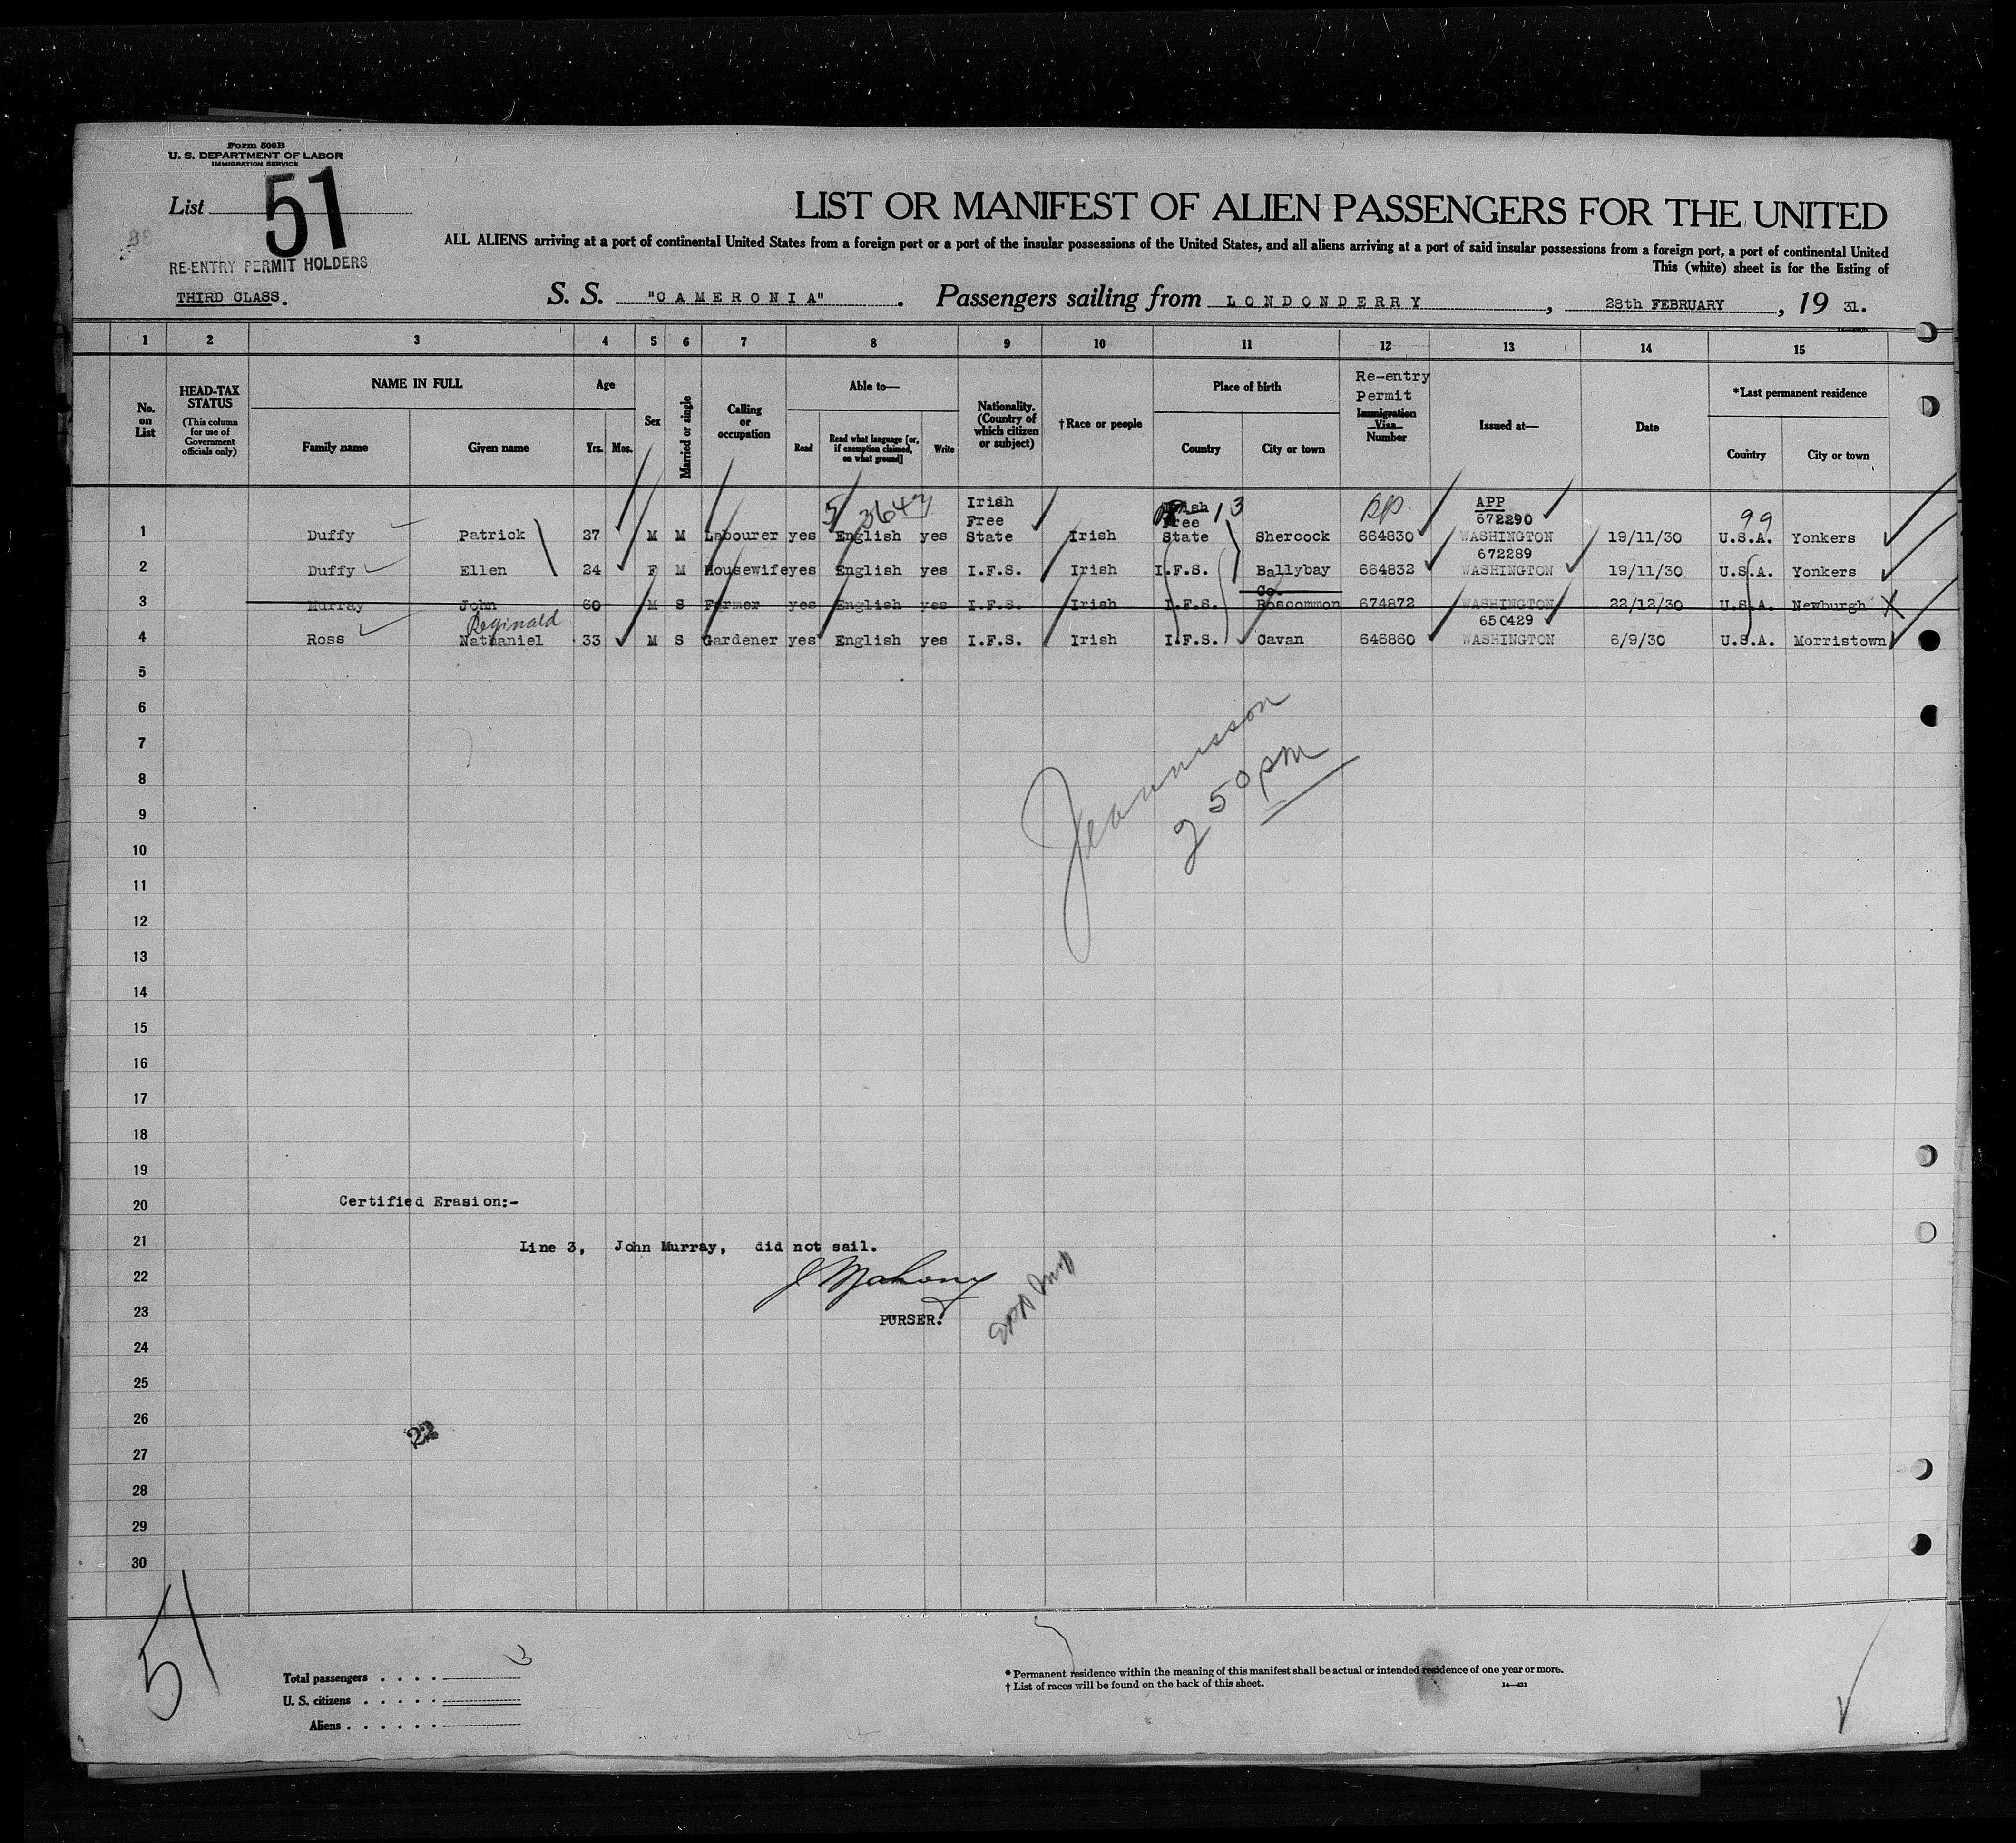 Form 500B
U. S. DEPARTMENT OF LABOR
IMMIGRATION SERVICE
List 51
RE-ENTRY PERMIT HOLDERS
THIRD CLASS.
LIST OR MANIFEST OF ALIEN PASSENGERS FOR THE UNITED
ALL ALIENS arriving at a port of continental United States from a foreign port or a port of the insular possessions of the United States, and all aliens arriving at a port of said insular possessions from a foreign port, a port of continental United
This (white) sheet is for the listing of
S. S. "CAMERONIA". Passengers sailing from LONDONDERRY, 28th FEBRUARY, 19 31.
1 2 3 4 5 6 7 8 9 10 11 12 13 14 15
No. on List
HEAD-TAX STATUS
(This column for use of Government officials only)
NAME IN FULL
Family name Given name
Age
Yrs. Mos.
Sex
Married or single
Calling or occupation
Able to—
Read Read what language [or, if exemption claimed, on what ground] Write
Nationality. (Country of which citizen or subject)
†Race or people
Place of birth
Country City or town
Re-entry Permit
Immigration Visa Number
Issued at—
Date
*Last permanent residence
Country City or town
5/3647 13 APP 99
1 Duffy Patrick 27 M M Labourer yes English yes Irish Free State Irish Irish Free State Shercock 664830 672290 WASHINGTON 19/11/30 U.S.A. Yonkers
2 Duffy Ellen 24 F M Housewife yes English yes I.F.S. Irish I.F.S. Ballybay 664832 672289 WASHINGTON 19/11/30 U.S.A. Yonkers
3 Murray John 60 M S Farmer yes English yes I.F.S. Irish I.F.S. Co. Roscommon 674872 WASHINGTON 22/12/30 U.S.A. Newburgh X
Reginald
4 Ross Nathaniel 33 M S Gardener yes English yes I.F.S. Irish I.F.S. Cavan 646860 650429 WASHINGTON 6/9/30 U.S.A. Morristown
5
6
7
8
9
10
11
12
13
14
15
16
17
18
19
20
21
22
23
24
25
26
27
28
29
30
2 50 pm
Certified Erasion:-
Line 3, John Murray, did not sail.
J Mahony
PURSER.
22
51
Total passengers . . . . 3
U. S. citizens . . . . .
Aliens . . . . . .
* Permanent residence within the meaning of this manifest shall be actual or intended residence of one year or more.
† List of races will be found on the back of this sheet.
14—431